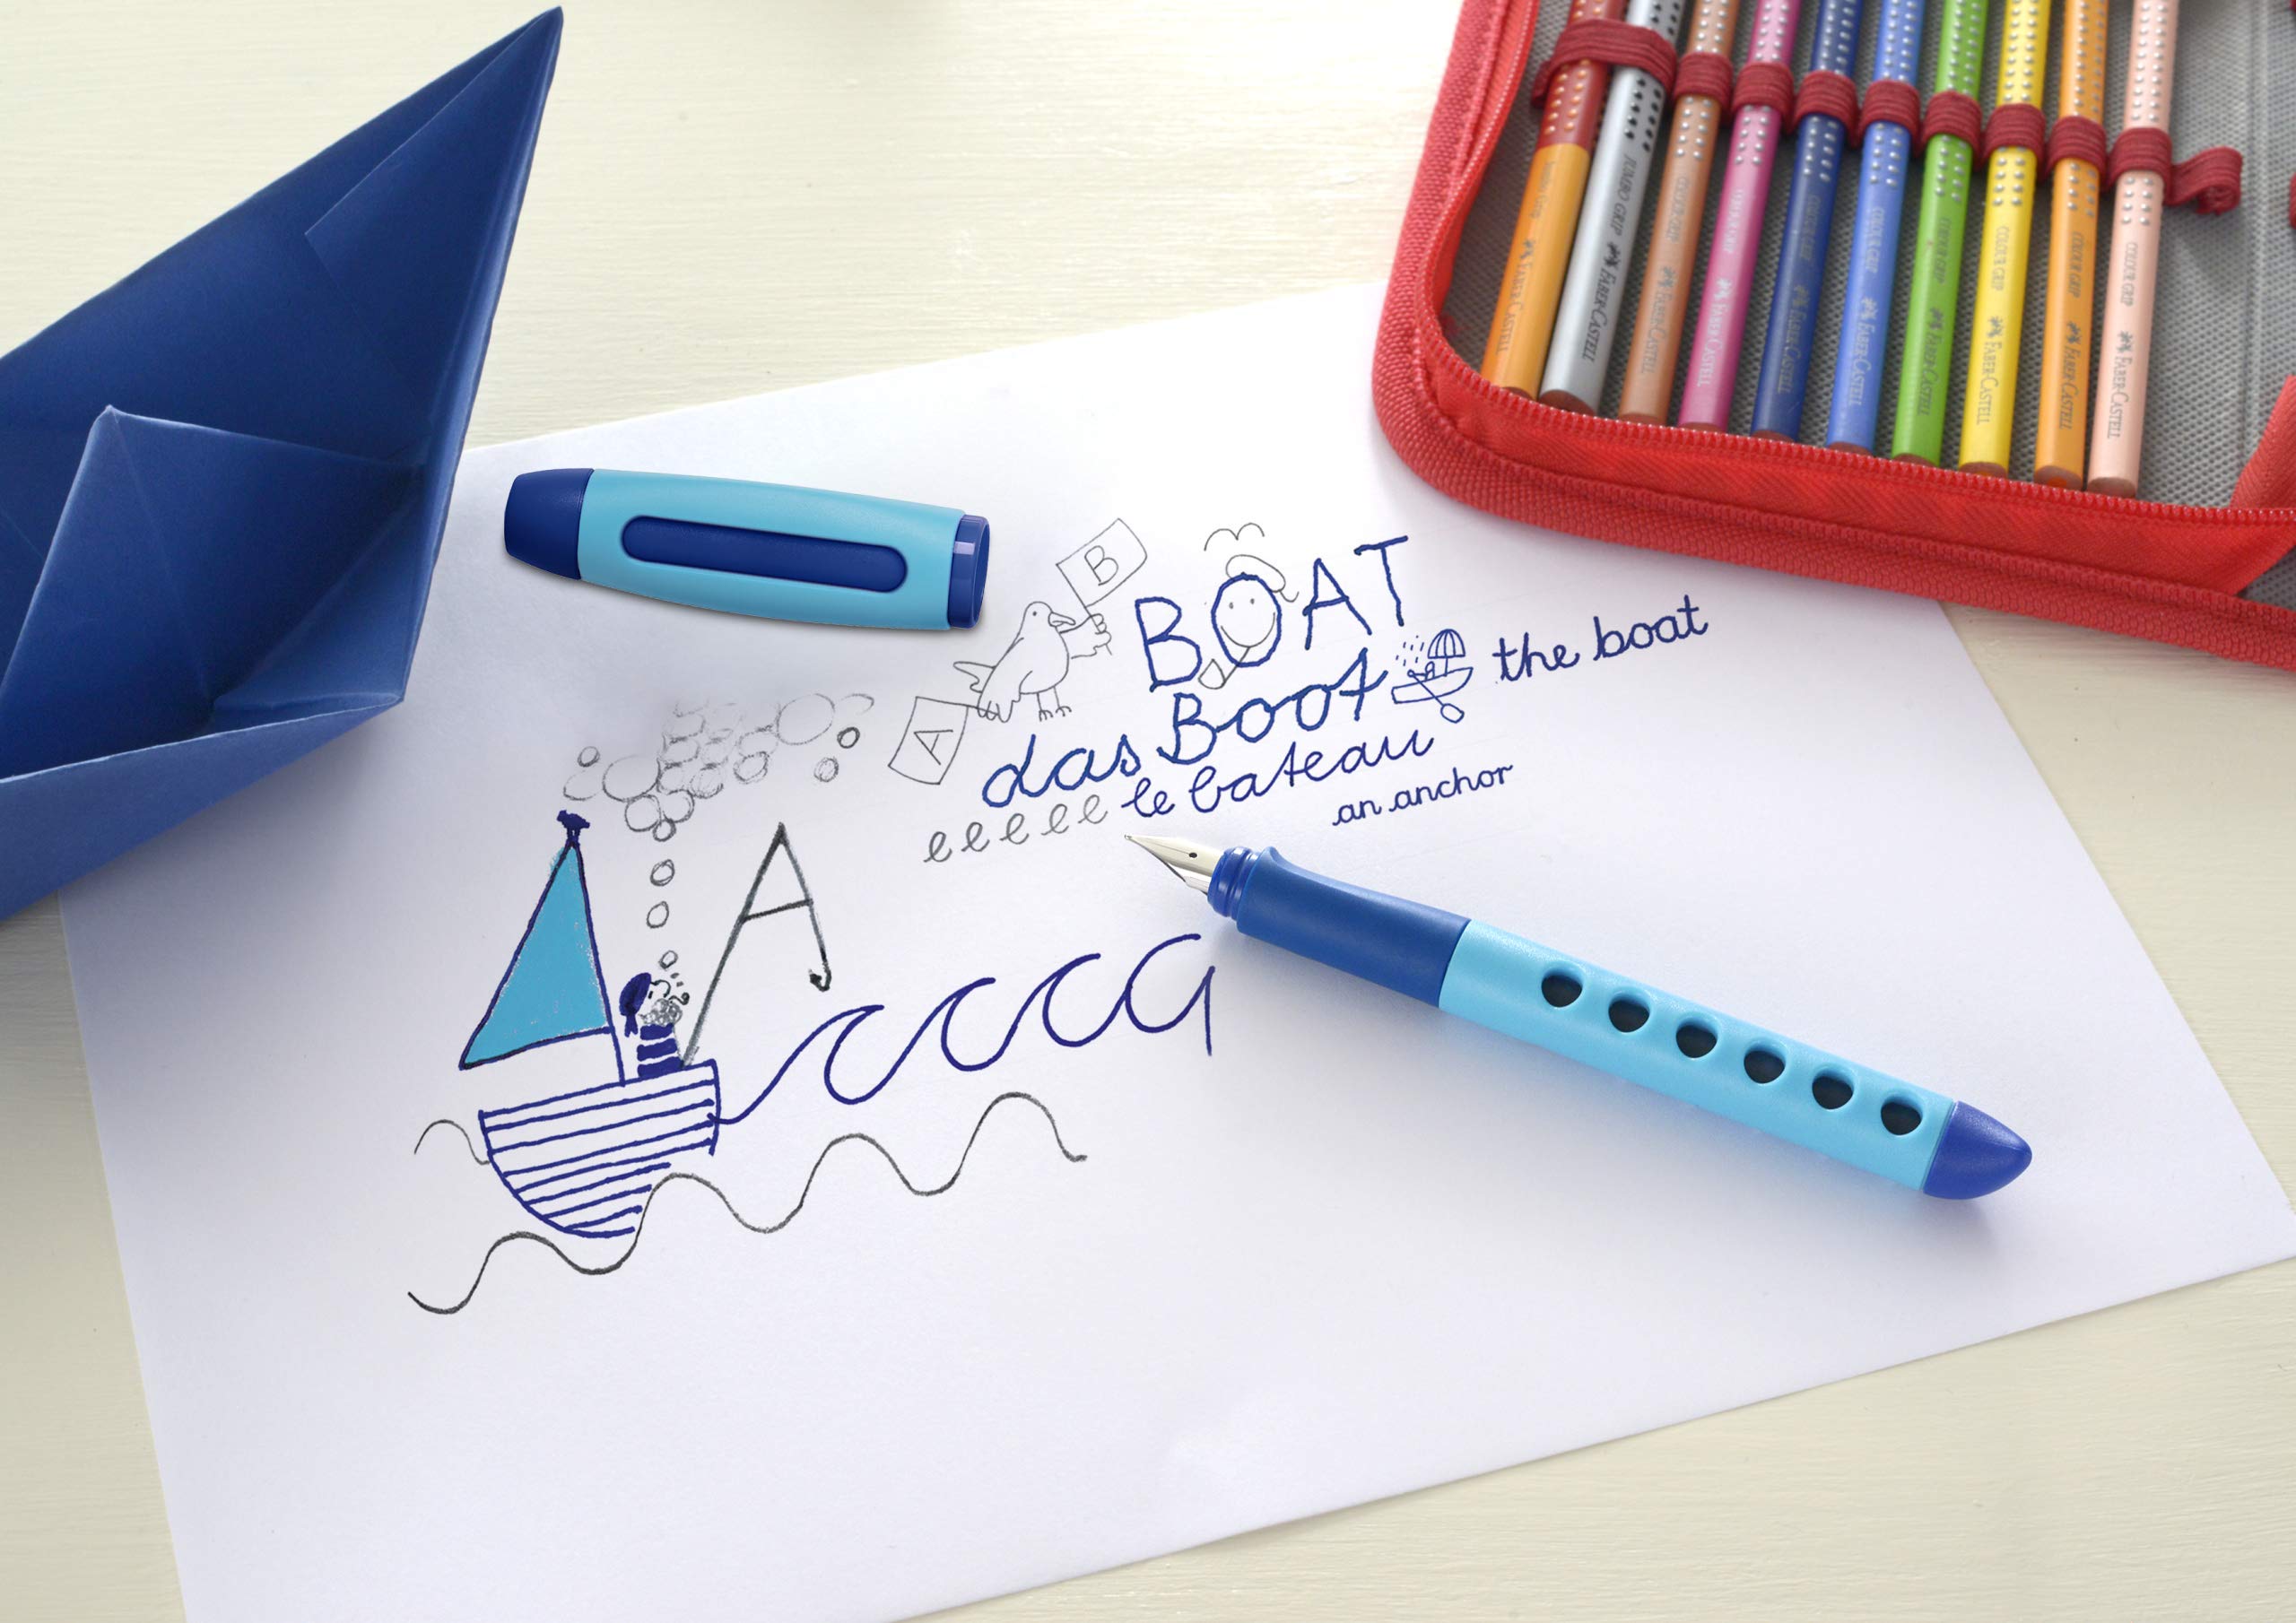 B
BOAT
A
das Boot
the boat
eeeee le bateau
an anchor
A
a
FABER-CASTELL
JUMBO GRIP FABER-CASTELL
COLOUR GRIP FABER-CASTELL
COLOUR GRIP FABER-CASTELL
COLOUR GRIP FABER-CASTELL
COLOUR GRIP FABER-CASTELL
COLOUR GRIP FABER-CASTELL
COLOUR GRIP FABER-CASTELL
COLOUR GRIP FABER-CASTELL
COLOUR GRIP FABER-CASTELL